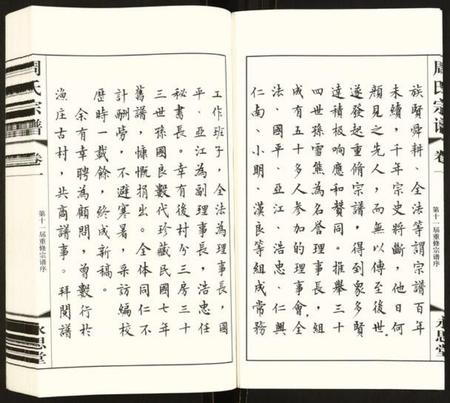 族賢舜耕、全法等謂宗譜百年
未續，千年宗史將斷，他日何
顏見之先人，而無以傳至後世，
遂發起重修宗譜，得到衆多賢
達積極响應和贊同。推舉三十
四世孫雪熊為名譽理事長，組
成有五十多人參加的理事會，全
法、國平、亞江、浩忠、仁興、
仁南、小明、漢良等組成常務
周氏宗譜
卷一
第十一屆重修宗谱序
永思堂
工作班子，全法為理事長，國
平、亞江為副理事長，浩忠任
秘書長。幸有後村分三房三十
三世孫國良毅代珍藏民國七年
舊譜，慷慨捐出。全体同仁不
計酬勞，不避寒暑，采訪編校
歷時一載餘，終成新稿。
余有幸聘為顧問，曾數行於
漁庄古村，共商譜事。拜閱譜
周氏宗譜
卷一
第十一屆重修宗谱序
永思堂